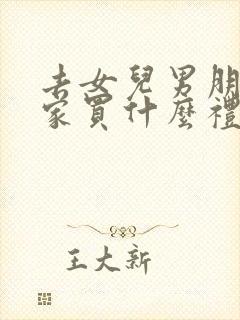 去女兒男朋
家買什麼禮
王大新